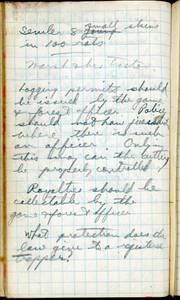 small skins
in 100 rats
Logging permits should
be issued by the game
& forest officer. Police
should not have
where there is such
an officer. Only
this way can the cutting
be properly controlled
Royalties should be
collectable by the
game & forest officer
What protection does the
law give to a registered
trapper?